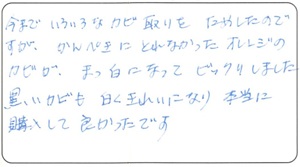 今まで いろいろな カビ 取りを ためしたので
すが、かんぺきに とれなかった オレンジの
カビが、まっ白になって ビックリしました
黒いカビも 白くきれいになり 本当に
購入して 良かったです